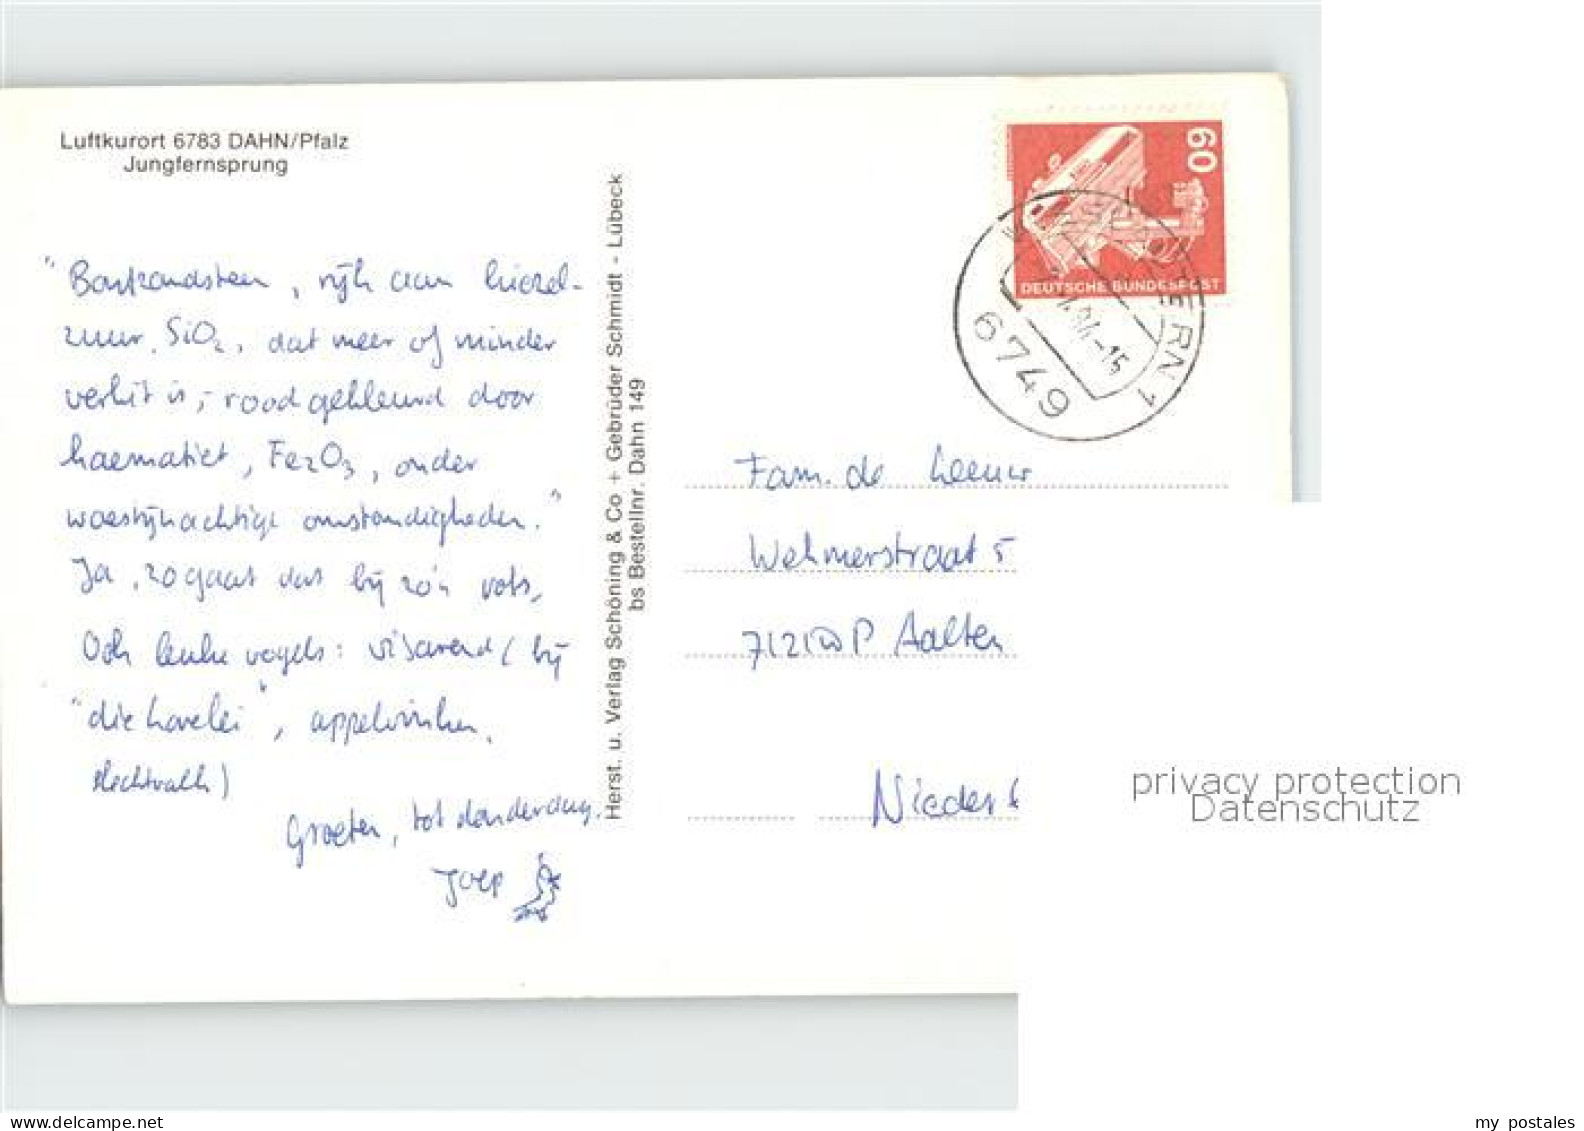 Luftkurort 6783 DAHN/Pfalz
Jungfernsprung
"Bontzandsteen, rijk aan kiezel-
zuur, SiO₂, dat meer of minder
verkit is, - rood gekleurd door
haematiet, Fe₂O₃, onder
woestijnachtige omstandigheden."
Ja, zo gaat dat bij zo'n rots,
Ook leuke vogels: visarend (bij
appelvinken,
slechtvalk)
Groeten, tot donderdag.
Joep
Herst. u. Verlag Schöning & Co + Gebrüder Schmidt - Lübeck
bs Bestellnr. Dahn 149
60
DEUTSCHE BUNDESPOST
6749
Fam. de Leeuw
Wehmerstraat 5
7121 WP Aalten
Nieder
privacy protection
Datenschutz
my postales
www.delcampe.net